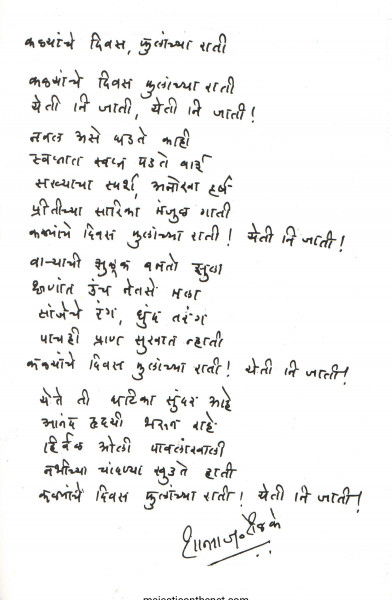 कळ्यांचे दिवस, फुलांच्या राती
कळ्यांचे दिवस फुलांच्या राती
येती नि जाती, येती नि जाती!
नवल असे घडते काही
स्वप्नात स्वप्न पडते बाई
सख्याचा स्पर्श, अनोखा हर्ष
प्रीतीच्या सारिका मंजुळ गाती
कळ्यांचे दिवस फुलांच्या राती! येती नि जाती!
वाऱ्याची झुळूक बनतो झुला
क्षणांत उंच नेतसे मला
सांजेचे रंग, धुंद तरंग
पाचही प्राण सुखात न्हाती
कळ्यांचे दिवस फुलांच्या राती! येती नि जाती!
येते ती घटिका सुंदर आहे
आनंद हृदयी भरून वाहे
हिर्वळ ओली पावलांखाली
नभीच्या चांदण्या खुडते हाती
कळ्यांचे दिवस फुलांच्या राती! येती नि जाती!
शान्ता ज. शेळके